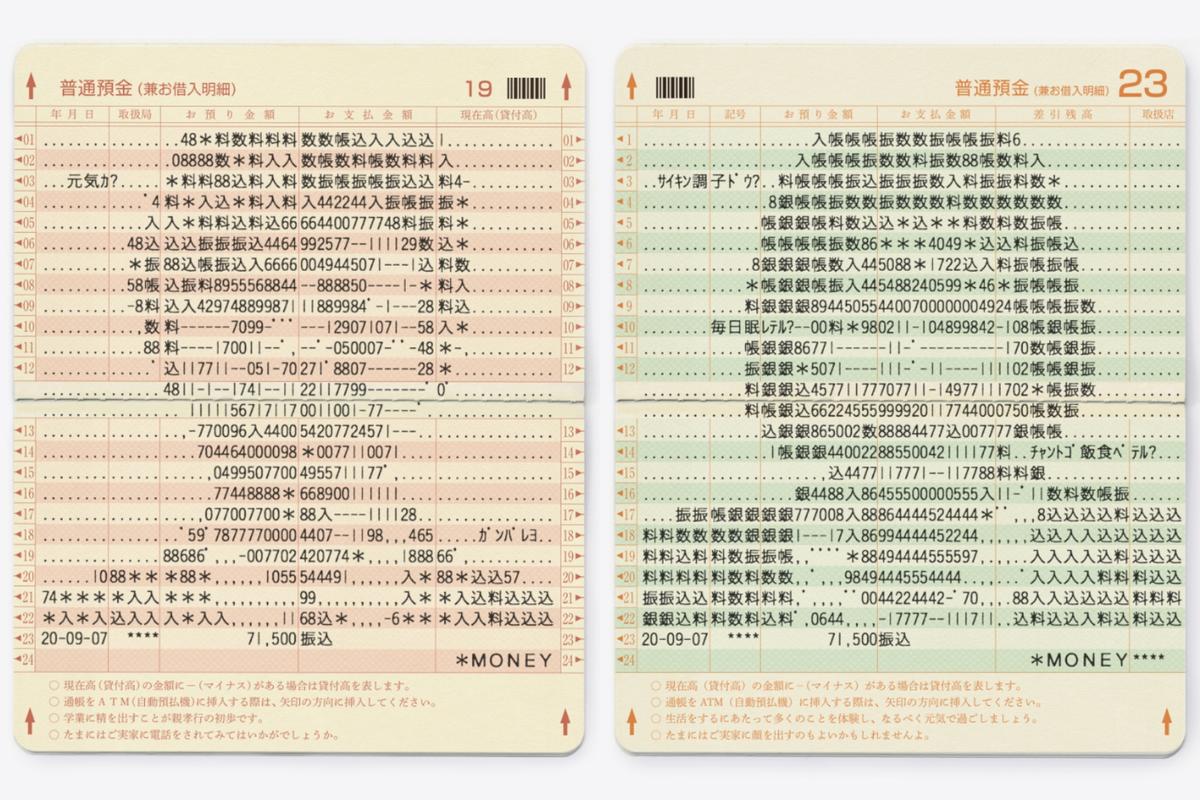 普通預金(兼お借入明細) 19
年月日 取扱局 お預り金額 お支払金額 現在高(貸付高)
01 48*料数料料料 数数帳込入入込込 | 01
02 08888数*料入入 数帳数料帳数料料 入 02
03 元気ｶ? *料料88込入料 数振帳振帳振込込 料4- 03
04 ﾞ4 料*入込*料入料 入442244入振帳振 振* 04
05 入 入*料料込料込66 664400777748料振 料* 05
06 48込 込込振振振込4464 992577--||||29数 込* 06
07 *振 88込帳振込入6666 004944507|---|込 料数 07
08 58帳 込振料8955568844 --888850----|-* 料入 08
09 -8料 込入42974889987| ||889984ﾞ-|---28 料込 09
10 ,数 料------7099-ﾞﾞﾞ ---|2907|07|--58 入* 10
11 88 料----|700||--ﾞ, --ﾞ-050007-ﾞﾞ-48 *-, 11
12 ﾞ 込||77||--051-70 27|ﾞ8807------28 * 12
48||-|--|74|--|| 22||7799-------ﾞ 0ﾞ
|||||567|7||7 00||00|-77----ﾞ
13 ,-770096入4400 5420772457|--- 13
14 704464000098 *0077||007| 14
15 0499507700 49557|||77ﾞ 15
16 77448888* 668900|||||| 16
17 ,077007700* 88入----||||28 17
18 ﾞ59ﾞ7877770000 4407--||98,,,465 ｶﾞﾝﾊﾞﾚﾖ 18
19 88686ﾞ,,,-007702 420774*,,,,|888 66ﾞ 19
20 |088** *88*,,,,,,|055 54449|,,,,,,入* 88*込込57 20
21 74**** *入入 ***,,,,,,,,,, 99,,,,,,,,,,入* *入込料込込込 21
22 *入*入込入入 入*入入,,,,,,|| 68込*,,,,-6** *入入料込込込 22
23 20-09-07 **** 71,500 振込 23
24 *MONEY 24
○ 現在高(貸付高)の金額に－(マイナス)がある場合は貸付高を表します。
○ 通帳をＡＴＭ(自動預払機)に挿入する際は、矢印の方向に挿入してください。
○ 学業に精を出すことが親孝行の初歩です。
○ たまにはご実家に電話をされてみてはいかがでしょうか。
普通預金(兼お借入明細) 23
年月日 記号 お預り金額 お支払金額 差引残高 取扱店
1 入帳帳帳振数数振帳帳振料6
2 入帳帳振振数数料振数88帳数料入
3 ｻｲｷﾝ調子ﾄﾞｳ? 料帳帳帳振込振振振数入料振振料数*
4 8銀帳帳帳数振振数数数料数数数数数数
5 帳銀銀帳料数込込*込**料数料数振帳
6 帳帳帳帳振数86***4049*込込料振帳込
7 8銀銀銀帳数入445088*|722込入料振帳振帳
8 *帳銀銀帳振入445488240599*46*振帳帳振
9 料銀銀銀894450554400700000004924帳帳振振数
10 毎日眠ﾚﾃﾙ?--00料*9802||-|04899842-|08帳銀帳振
11 帳銀銀8677|--------||-ﾞ----------|70数帳銀振
12 振銀銀*507|----|||-ﾞ-||----||||02帳銀帳振
料銀銀込4577|||777077||-|4977|||702*帳振数
料帳銀込66224555999920||7744000750帳数振
13 込銀銀865002数88884477込007777銀帳帳
14 |帳銀銀44002288550042||||77料 ﾁｬﾝﾄｺﾞ飯食ﾍﾞﾃﾙ?
15 ,込4477||777|--||7788料料銀
16 銀4488入86455500000555入||-ﾞ||数料数帳振
17 振振帳銀銀銀銀777008入88644445​24444*ﾞﾞ,,,8込込込込料込込込
18 料料数数数数銀銀|---|7入86994444452244,,,,,,込込入入込込込込
19 料料込料料数振振帳,ﾞﾞﾞﾞ*88494444555597,,,,,入入入入込料込込
20 料料料料料数料数数,,ﾞ,,,98494445554444,,,,,,ﾞ入入入入料料料込込
21 振振込込料数料料料,ﾞ,,,,ﾞﾞ0044224442-ﾞ70,,,,88入込込込込料料料
22 銀銀込料料数料込料ﾞ,0644,,,,-|7777--|||7||,,込入込込料込料込込
23 20-09-07 **** 71,500 振込
24 *MONEY****
○ 現在高（貸付高）の金額に－(マイナス)がある場合は貸付高を表します。
○ 通帳を ATM（自動預払機）に挿入する際は、矢印の方向に挿入してください。
○ 生活をするにあたって多くのことを体験し、なるべく元気で過ごしましょう。
○ たまにはご実家に顔を出すのもよいかもしれませんよ。